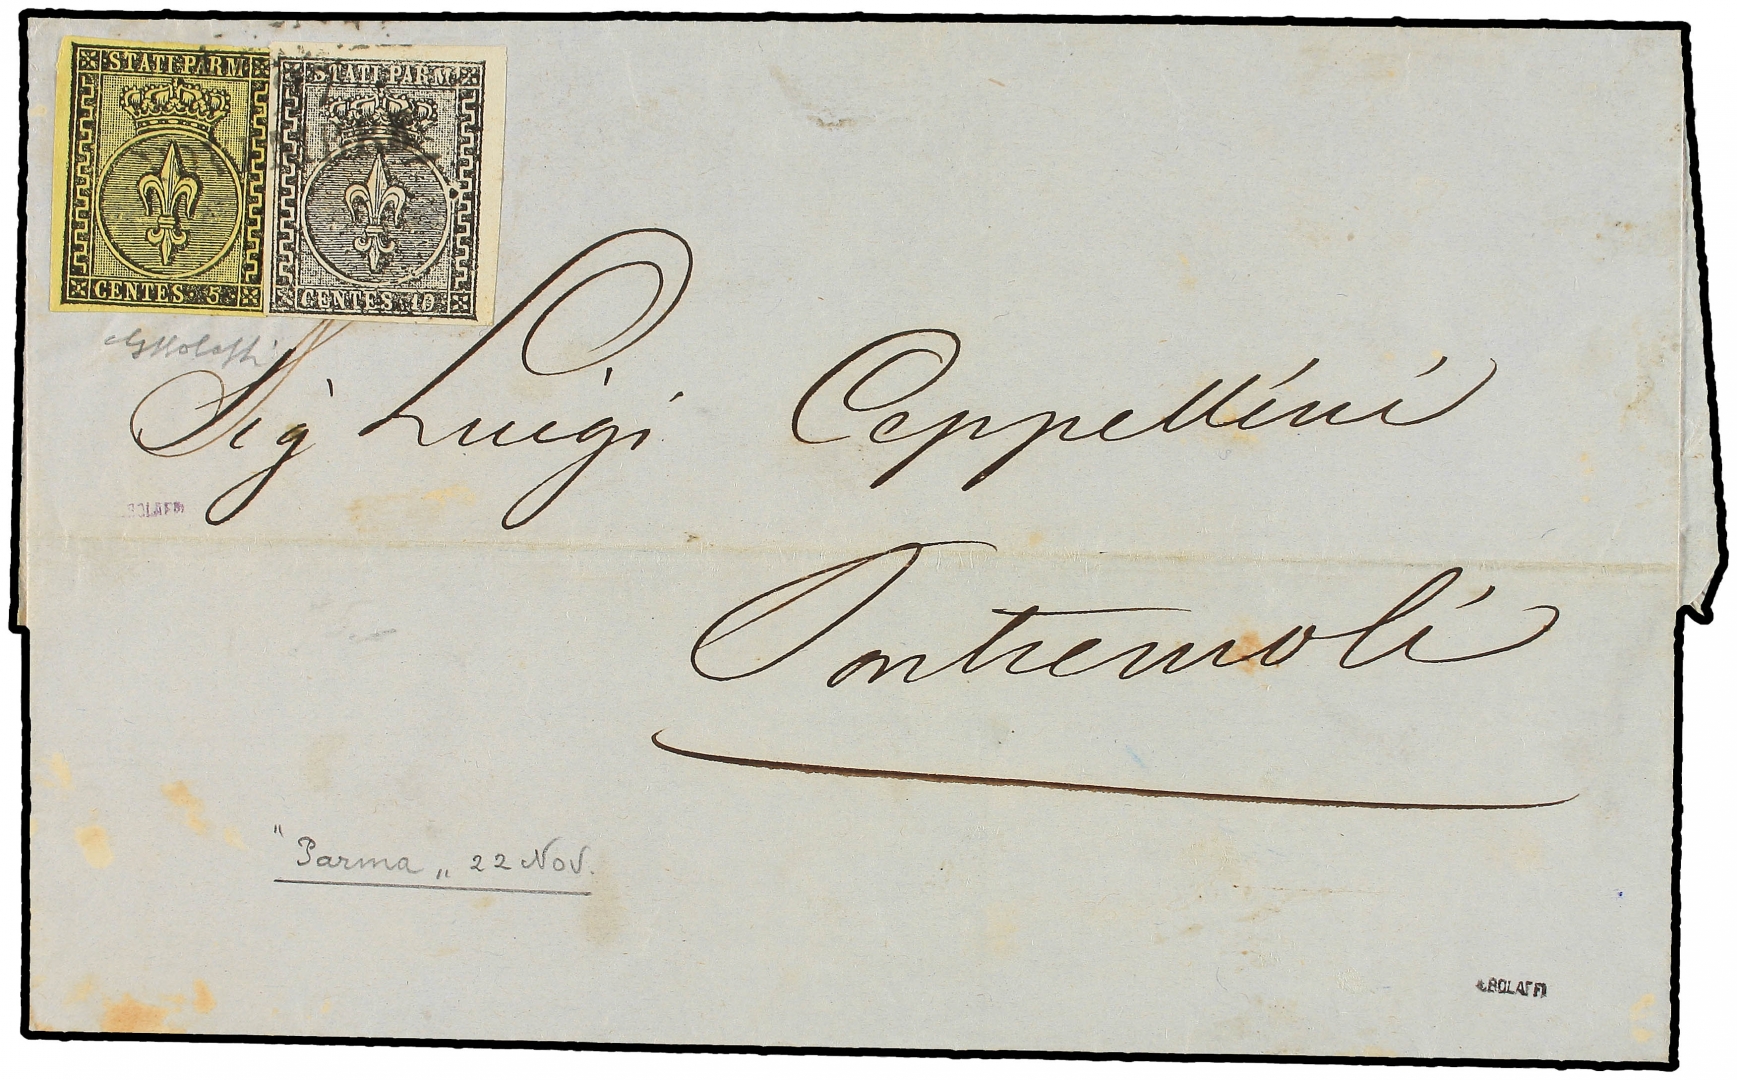 STATI PARM
CENTES. 5
STATI PARM
CENTES. 10
Sig Luigi Ceppellini
BOLAFFI
Pontremoli
"Parma„ 22 Nov.
ABOLAFFI